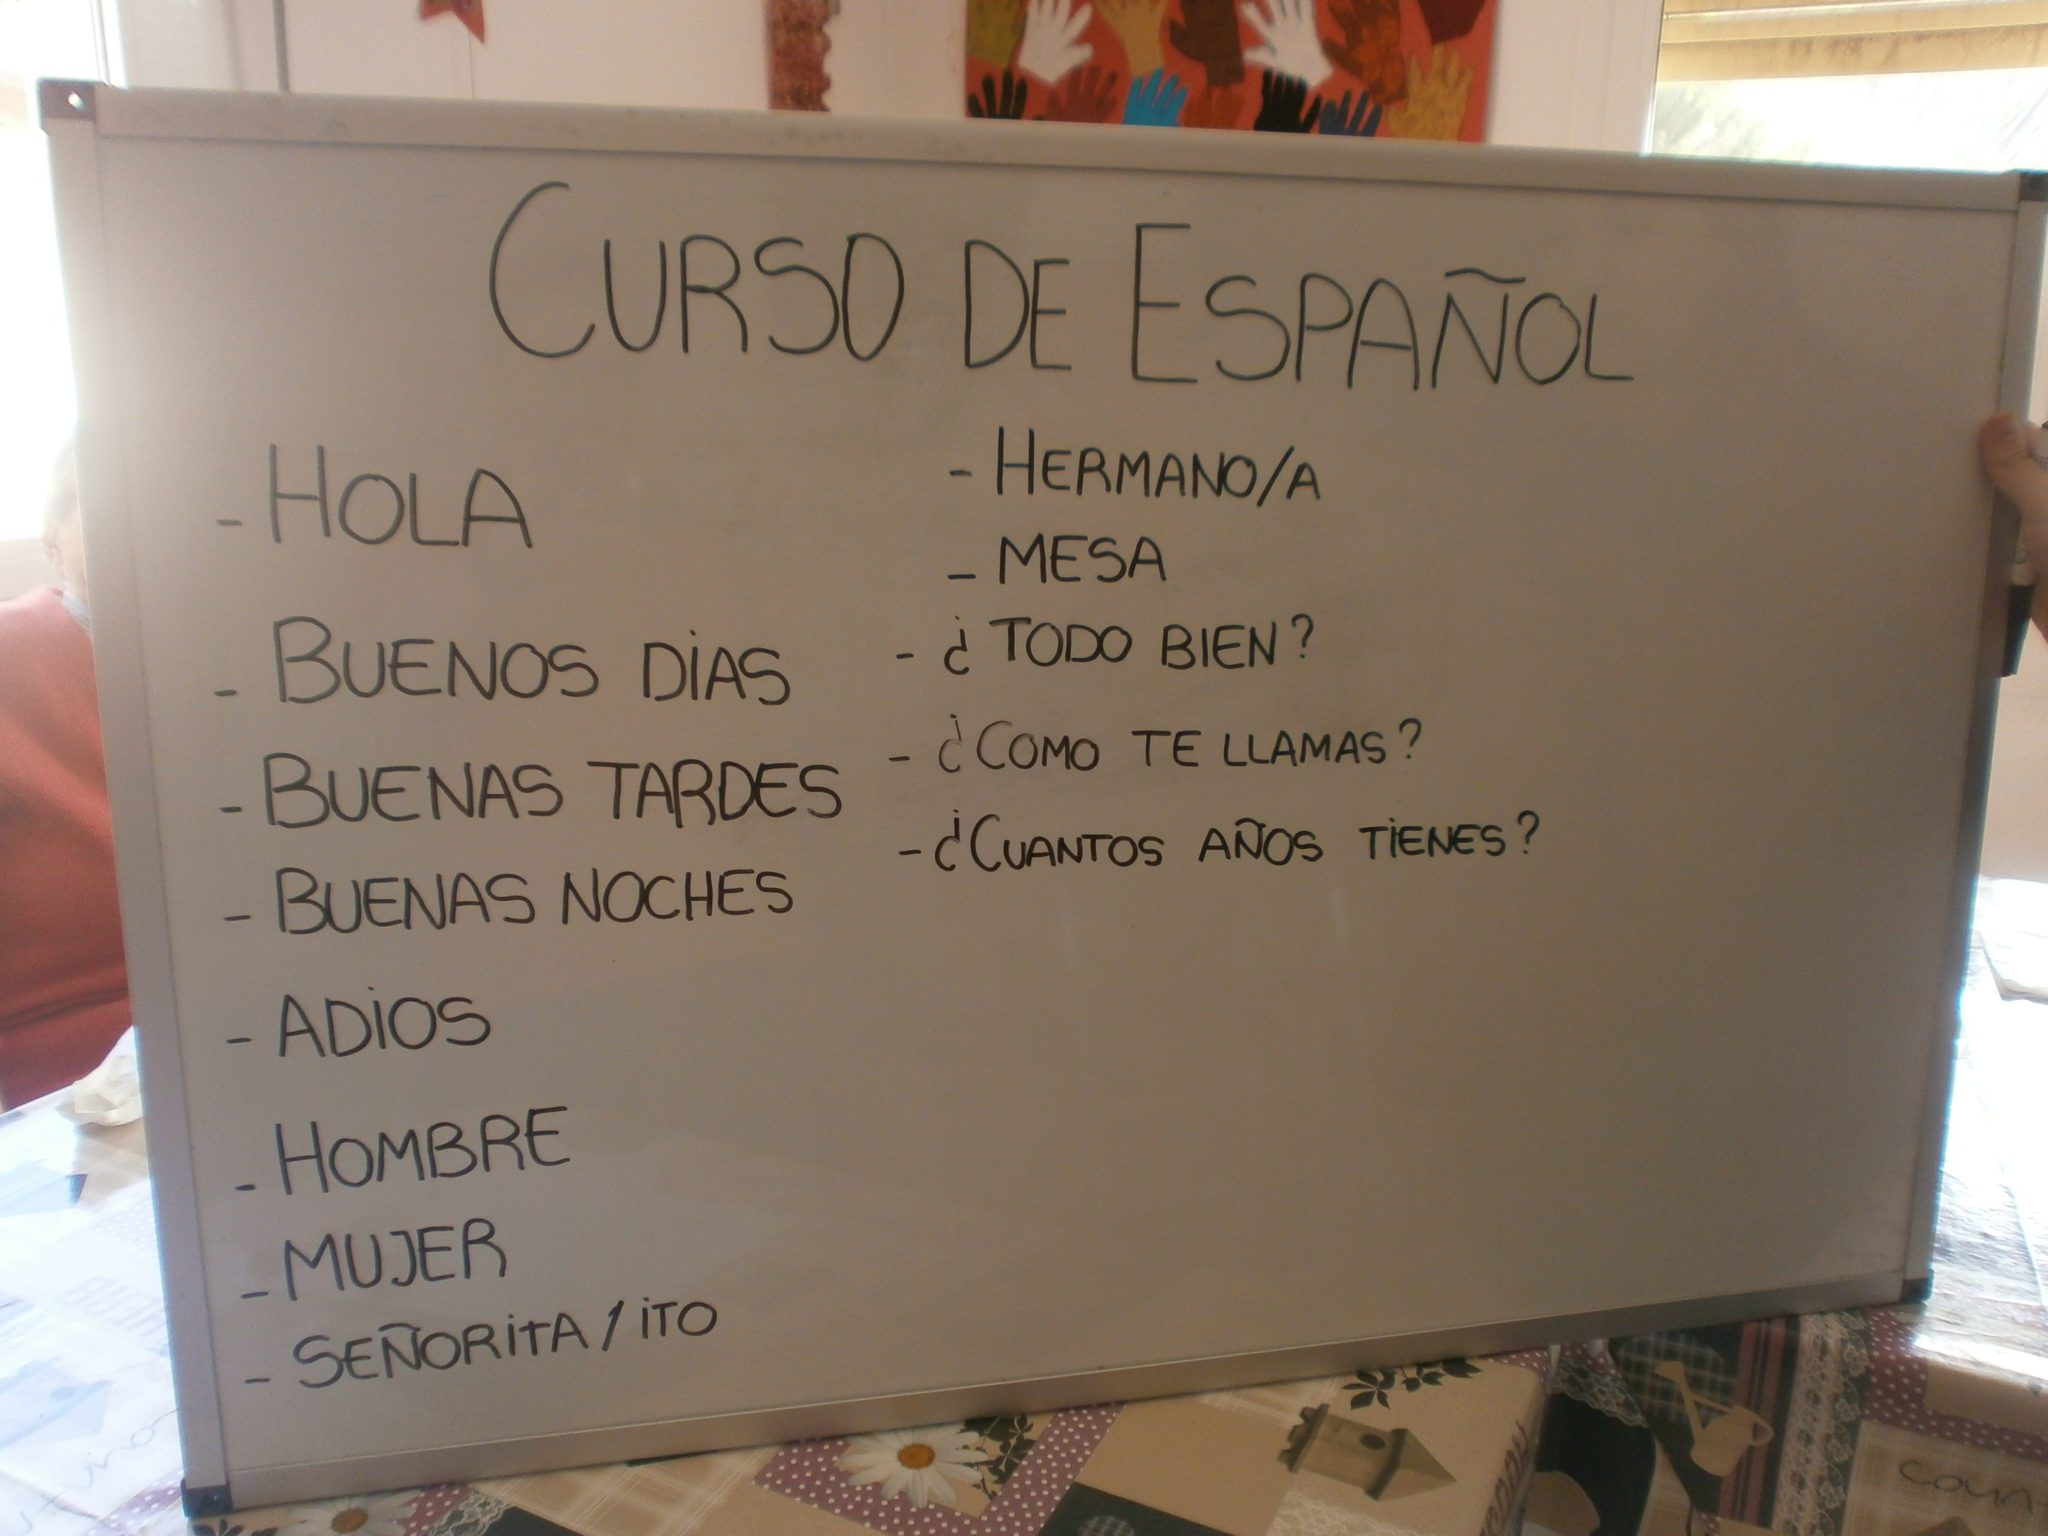 CURSO DE ESPAÑOL
- HOLA
- BUENOS DiAS
- BUENAS TARDES
- BUENAS NOCHES
- ADiOS
- HOMBRE
- MUJER
- SEÑORiTA/iTO
- HERMANO/A
- MESA
- ¿TODO BIEN?
- ¿COMO TE LLAMAS?
- ¿CUANTOS AÑOS TiENES?